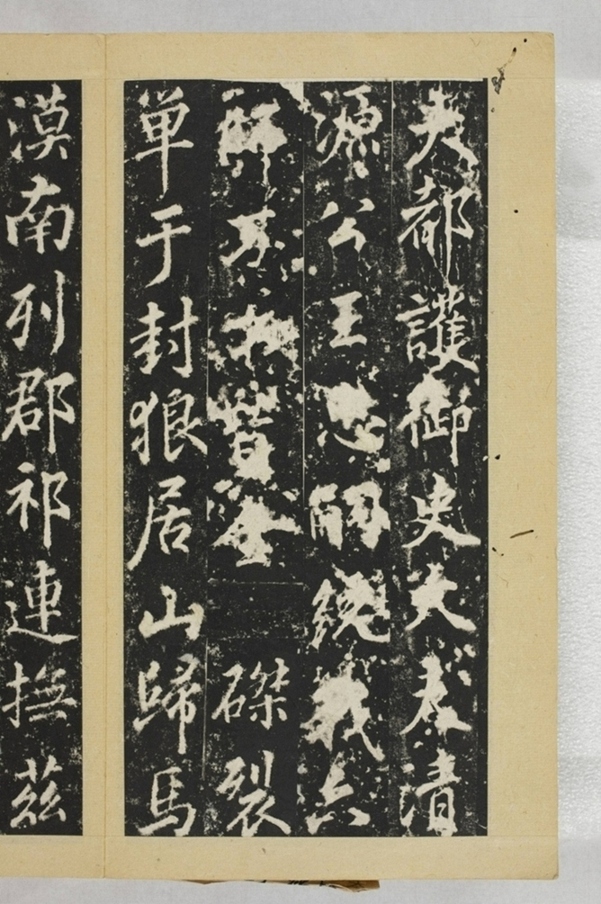 大都護御史大夫清
源公王忠嗣統我六
師磔裂
单于封狼居山歸馬
漠南列郡祁連撫茲